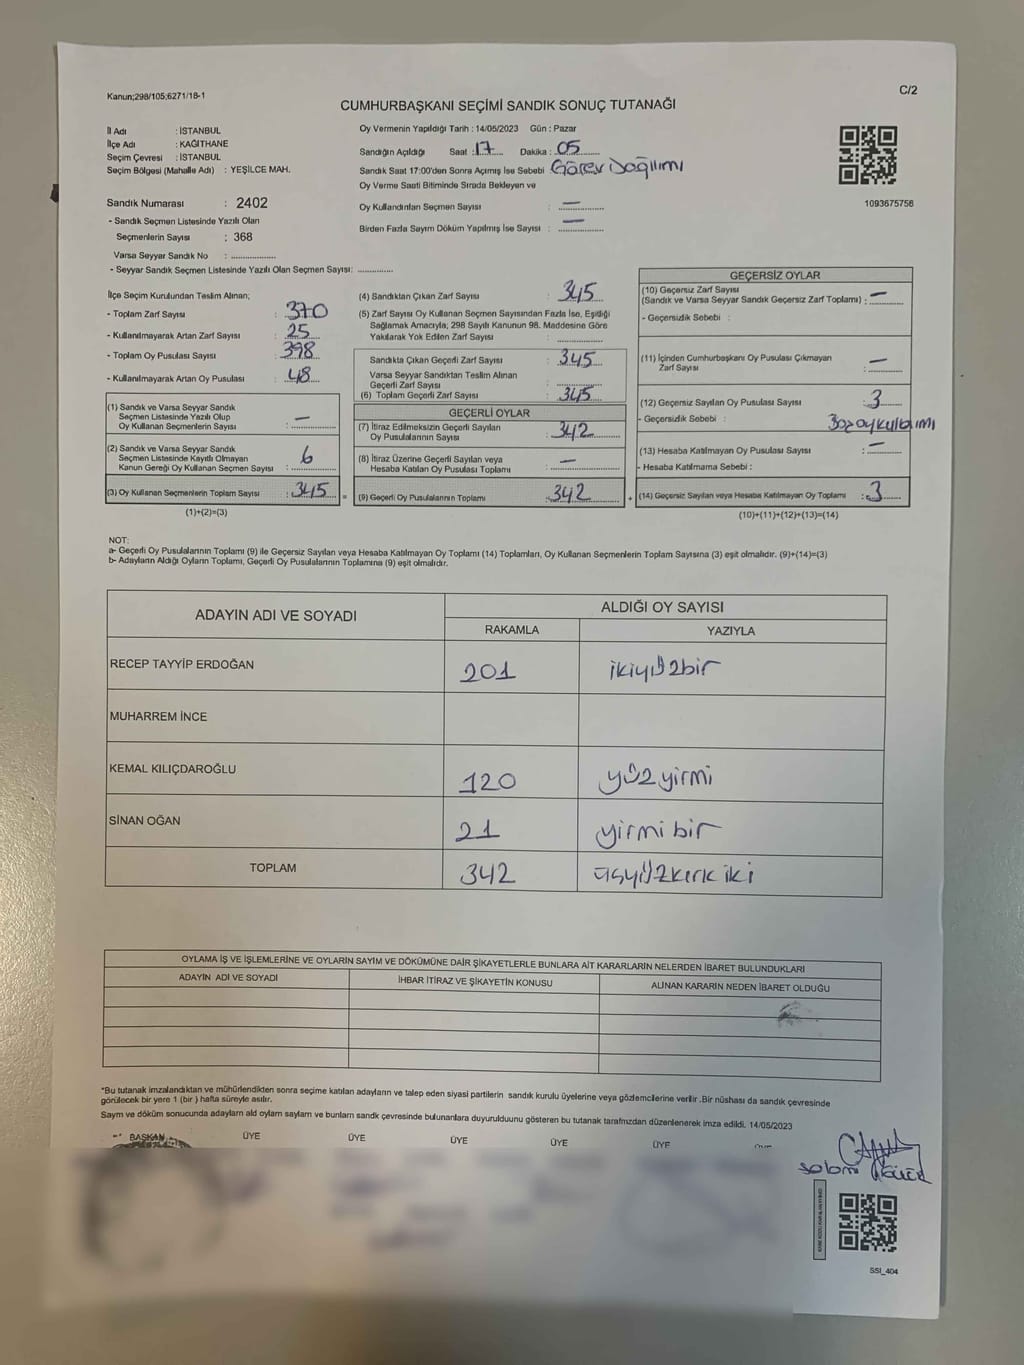 Kanun;298/105;6271/18-1
C/2
CUMHURBAŞKANI SEÇİMİ SANDIK SONUÇ TUTANAĞI
İl Adı : İSTANBUL
İlçe Adı : KAĞITHANE
Seçim Çevresi : İSTANBUL
Seçim Bölgesi (Mahalle Adı) : YEŞİLCE MAH.
Oy Vermenin Yapıldığı Tarih : 14/05/2023 Gün : Pazar
Sandığın Açıldığı Saat : 17 Dakika : 05
Sandık Saat 17:00'den Sonra Açımış İse Sebebi Görev Dağılımı
Oy Verme Saati Bitiminde Sırada Bekleyen ve
Oy Kullandırılan Seçmen Sayısı : —
Birden Fazla Sayım Döküm Yapılmış İse Sayısı : —
1093675756
Sandık Numarası : 2402
- Sandık Seçmen Listesinde Yazılı Olan
Seçmenlerin Sayısı : 368
Varsa Seyyar Sandık No :
- Seyyar Sandık Seçmen Listesinde Yazılı Olan Seçmen Sayısı:
İlçe Seçim Kurulundan Teslim Alınan;
- Toplam Zarf Sayısı : 370
- Kullanılmayarak Artan Zarf Sayısı : 25
- Toplam Oy Pusulası Sayısı : 398
- Kullanılmayarak Artan Oy Pusulası : 48
(1) Sandık ve Varsa Seyyar Sandık
Seçmen Listesinde Yazılı Olup
Oy Kullanan Seçmenlerin Sayısı : —
(2) Sandık ve Varsa Seyyar Sandık
Seçmen Listesinde Kayıtlı Olmayan
Kanun Gereği Oy Kullanan Seçmen Sayısı : 6
(3) Oy Kullanan Seçmenlerin Toplam Sayısı : 345 =
(1)+(2)=(3)
(4) Sandıktan Çıkan Zarf Sayısı : 345
(5) Zarf Sayısı Oy Kullanan Seçmen Sayısından Fazla İse, Eşitliği
Sağlamak Amacıyla; 298 Sayılı Kanunun 98. Maddesine Göre
Yakılarak Yok Edilen Zarf Sayısı :
Sandıkta Çıkan Geçerli Zarf Sayısı : 345
Varsa Seyyar Sandıktan Teslim Alınan
Geçerli Zarf Sayısı :
(6) Toplam Geçerli Zarf Sayısı : 345
GEÇERLİ OYLAR
(7) İtiraz Edilmeksizin Geçerli Sayılan
Oy Pusulalarının Sayısı : 342
(8) İtiraz Üzerine Geçerli Sayılan veya
Hesaba Katılan Oy Pusulası Toplamı : —
(9) Geçerli Oy Pusulalarının Toplamı : 342 +
GEÇERSİZ OYLAR
(10) Geçersiz Zarf Sayısı
(Sandık ve Varsa Seyyar Sandık Geçersiz Zarf Toplamı) : —
- Geçersizlik Sebebi :
(11) İçinden Cumhurbaşkanı Oy Pusulası Çıkmayan
Zarf Sayısı : —
(12) Geçersiz Sayılan Oy Pusulası Sayısı : 3
- Geçersizlik Sebebi :
(13) Hesaba Katılmayan Oy Pusulası Sayısı : —
- Hesaba Katılmama Sebebi :
(14) Geçersiz Sayılan veya Hesaba Katılmayan Oy Toplamı : 3
(10)+(11)+(12)+(13)=(14)
NOT:
a- Geçerli Oy Pusulalarının Toplamı (9) ile Geçersiz Sayılan veya Hesaba Katılmayan Oy Toplamı (14) Toplamları, Oy Kullanan Seçmenlerin Toplam Sayısına (3) eşit olmalıdır. (9)+(14)=(3)
b- Adayların Aldığı Oyların Toplamı, Geçerli Oy Pusulalarının Toplamına (9) eşit olmalıdır.
ADAYIN ADI VE SOYADI
ALDIĞI OY SAYISI
RAKAMLA YAZIYLA
RECEP TAYYİP ERDOĞAN 201 ikiyüzbir
MUHARREM İNCE
KEMAL KILIÇDAROĞLU 120 yüzyirmi
SİNAN OĞAN 21 yirmi bir
TOPLAM 342 üçyüzkırk iki
OYLAMA İŞ VE İŞLEMLERİNE VE OYLARIN SAYIM VE DÖKÜMÜNE DAİR ŞİKAYETLERLE BUNLARA AİT KARARLARIN NELERDEN İBARET BULUNDUKLARI
ADAYIN ADI VE SOYADI İHBAR İTİRAZ VE ŞİKAYETİN KONUSU ALINAN KARARIN NEDEN İBARET OLDUĞU
*Bu tutanak imzalandıktan ve mühürlendikten sonra seçime katılan adayların ve talep eden siyasi partilerin sandık kurulu üyelerine veya gözlemcilerine verilir .Bir nüshası da sandık çevresinde
görülecek bir yere 1 (bir ) hafta süreyle asılır.
Sayım ve döküm sonucunda adayların ald oyların sayların ve bunların sandk çevresinde bulunanlara duyurulduunu gösteren bu tutanak tarafmzdan düzenlenerek imza edildi. 14/05/2023
BAŞKAN ÜYE ÜYE ÜYE ÜYE ÜYE
SSI_404